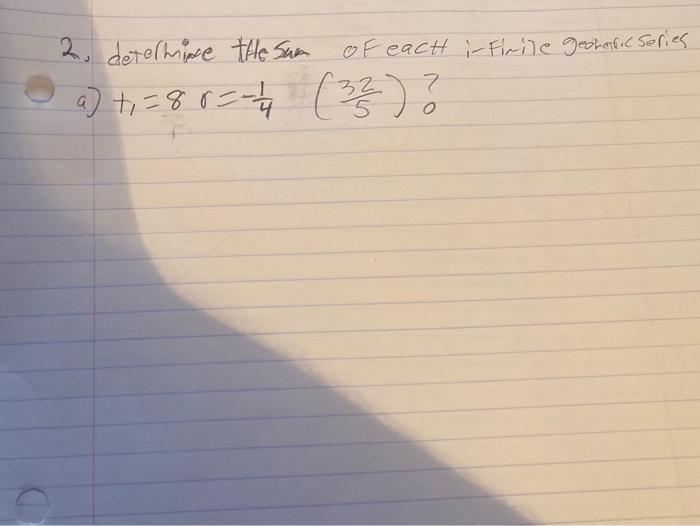 2. determine tHe sum oF eacH inFinite geometric series
a) t₁ = 8 r = -1/4 (32/5) ?